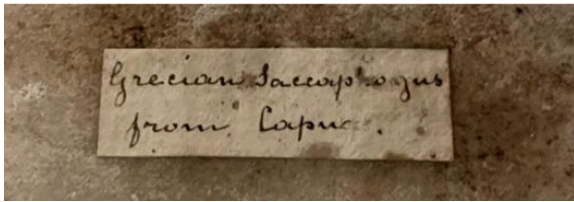 Grecian Saccaphogus
from Capua.